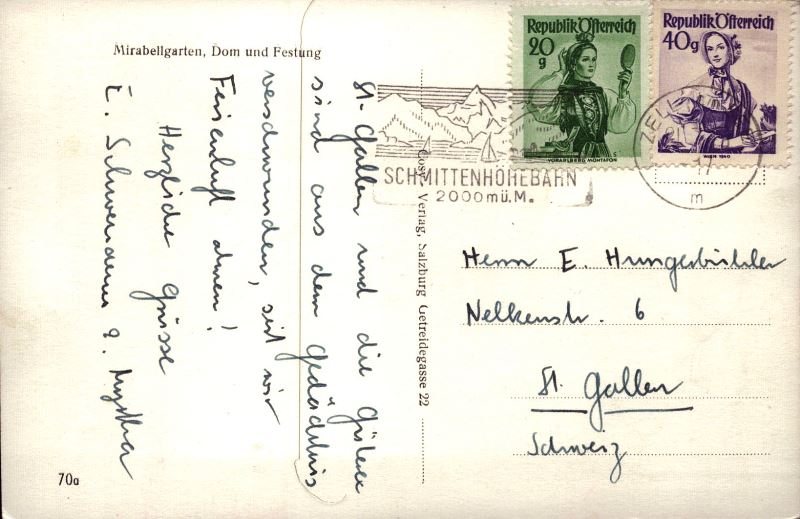 Mirabellgarten, Dom und Festung
St. Gallen und die
sind aus dem Gedächtnis
verschwunden, seit wir
Ferienluft atmen!
Herzliche Grüsse
E.
70a
Verlag, Salzburg Getreidegasse 22
Republik Österreich
20
g
VORARLBERG MONTAFON
Republik Österreich
40g
WIEN 1840
SCHMITTENHÖHEBAHN
2000mü.M.
ZELL
17
m
Herrn E. Hungerbühler
Nelkenstr. 6
St. Gallen
Schweiz